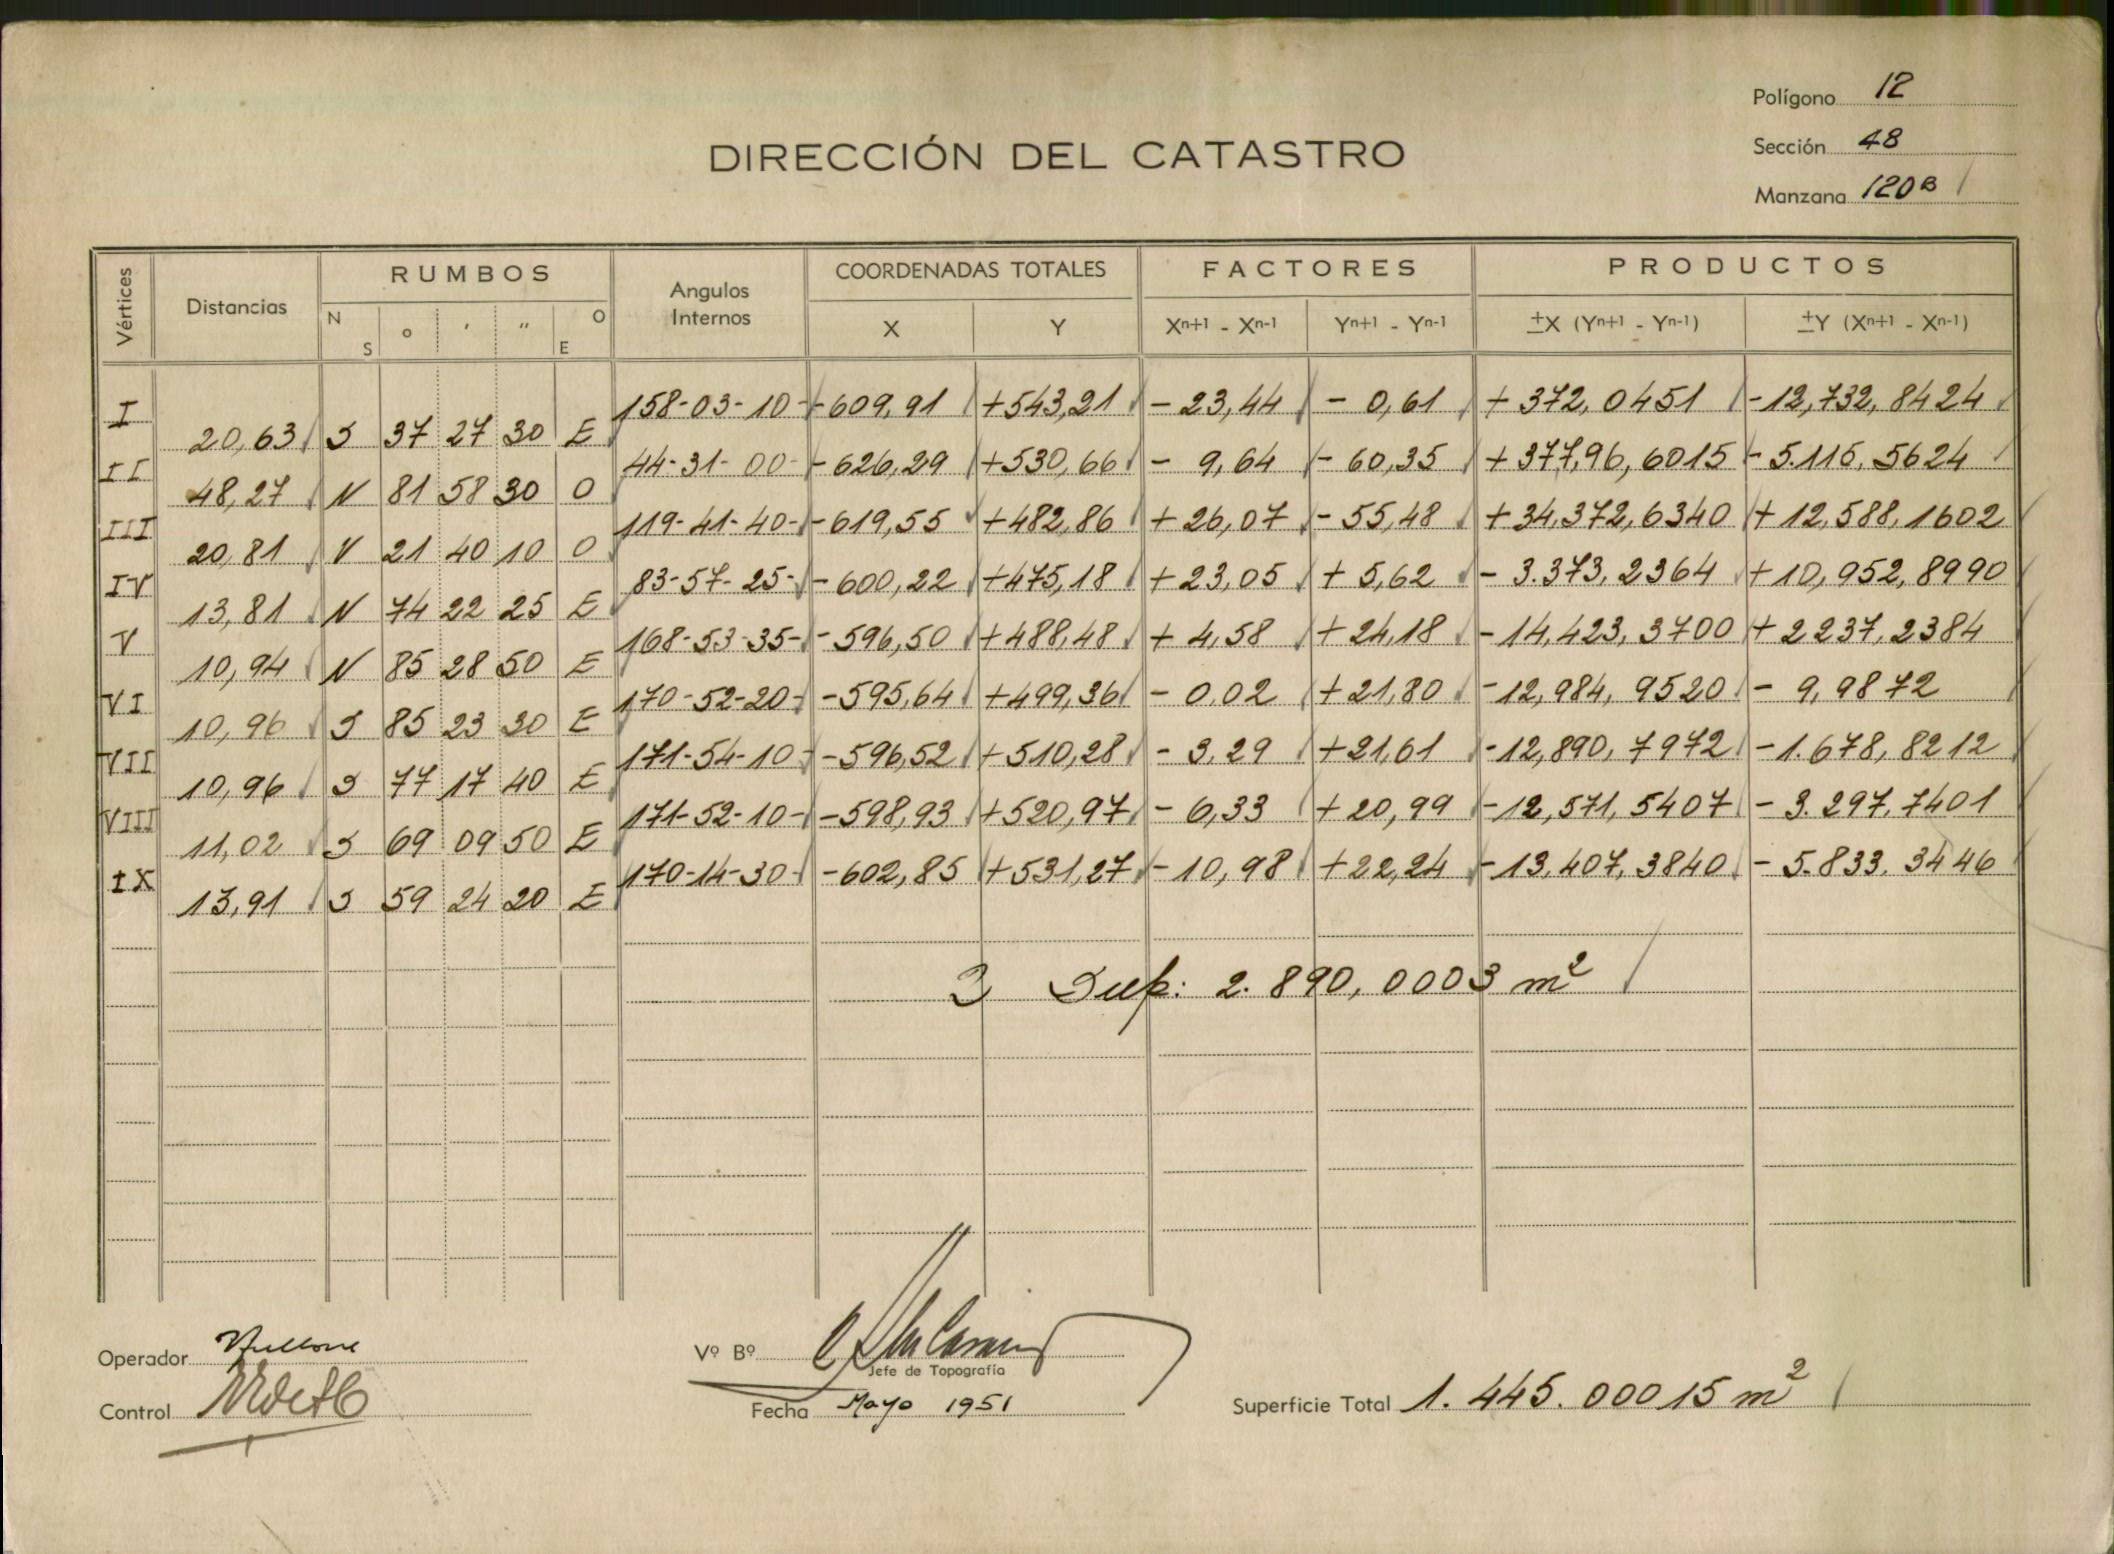 Polígono 12
DIRECCIÓN DEL CATASTRO
Sección 48
Manzana 120B
Vértices Distancias RUMBOS Angulos Internos COORDENADAS TOTALES FACTORES PRODUCTOS
N S ° ' " O E X Y Xn+1 - Xn-1 Yn+1 - Yn-1 ±X (Yn+1 - Yn-1) ±Y (Xn+1 - Xn-1)
I 158-03-10 -609,91 +543,21 - 23,44 - 0,61 + 372,0451 -12,732,8424
20,63 S 37 27 30 E
II 44-31-00 -626,29 +530,66 - 9,64 - 60,35 +377,96,6015 -5.115,5624
48,27 N 81 58 30 O
III 119-41-40 -619,55 +482,86 +26,07 -55,48 +34,372,6340 +12,588,1602
20,81 N 21 40 10 O
IV 83-57-25 -600,22 +475,18 +23,05 + 5,62 - 3.373,2364 +10,952,8990
13,81 N 74 22 25 E
V 168-53-35 -596,50 +488,48 + 4,58 +24,18 -14,423,3700 +2237,2384
10,94 N 85 28 50 E
VI 170-52-20 -595,64 +499,36 - 0,02 +21,80 -12,984,9520 - 9,9872
10,96 S 85 23 30 E
VII 171-54-10 -596,52 +510,28 - 3,29 +21,61 -12,890,7972 -1.678,8212
10,96 S 77 17 40 E
VIII 171-52-10 -598,93 +520,97 - 6,33 +20,99 -12,571,5407 -3.297,7401
11,02 S 69 09 50 E
IX 170-14-30 -602,85 +531,27 -10,98 +22,24 -13.407,3840 -5.833,3446
13,91 S 59 24 20 E
2 Sup: 2.890,0003 m²
Operador
Vº Bº
Jefe de Topografía
Control
Fecha Mayo 1951
Superficie Total 1.445.00015 m²